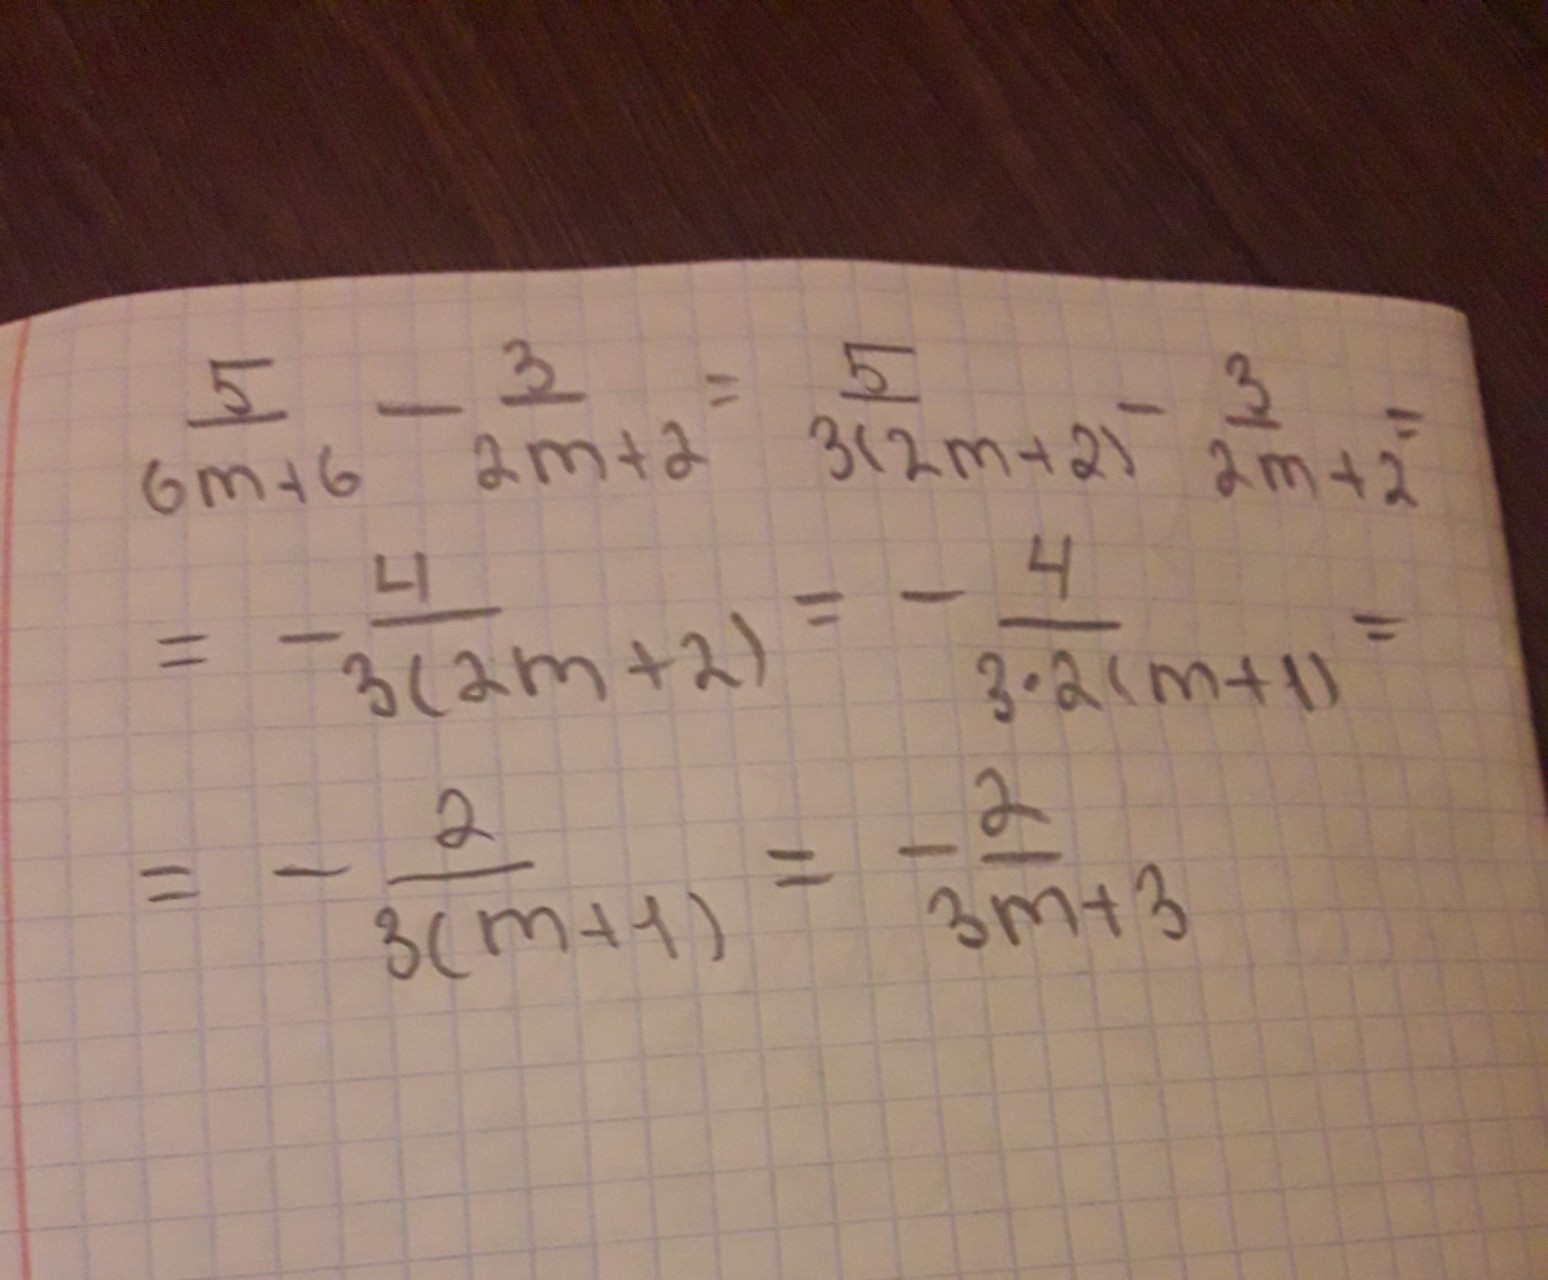 5/(6m+6) - 3/(2m+2) = 5/(3(2m+2)) - 3/(2m+2) =
= - 4/(3(2m+2)) = - 4/(3·2(m+1)) =
= - 2/(3(m+1)) = - 2/(3m+3)